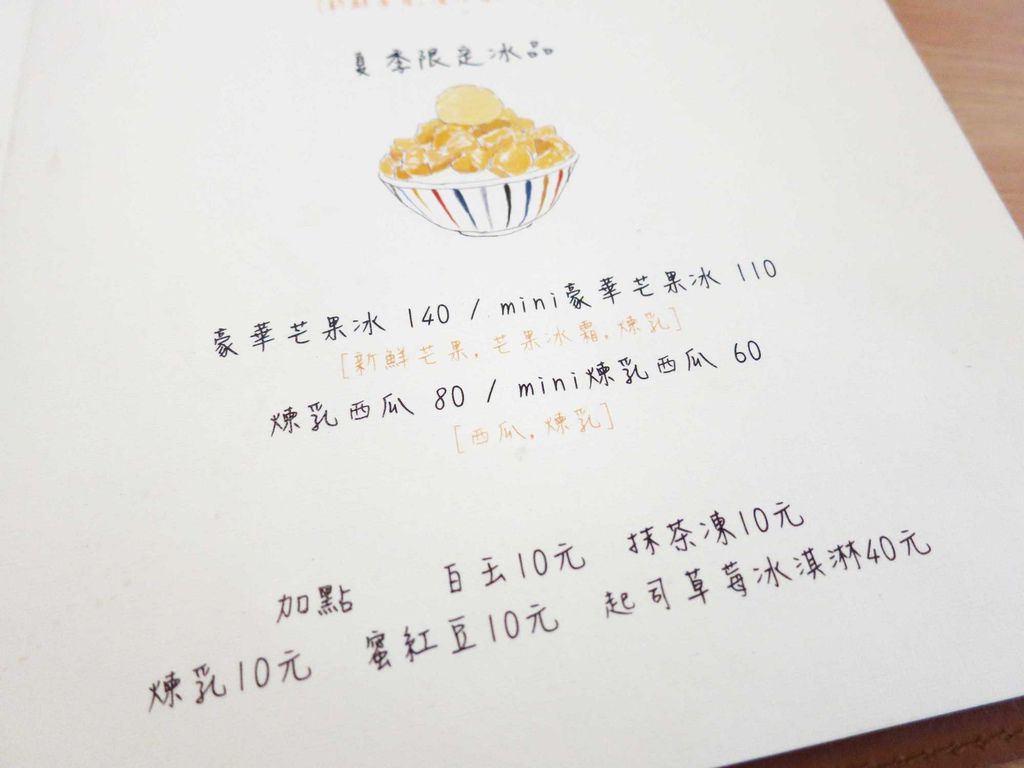 夏季限定冰品
豪華芒果冰 140 / mini豪華芒果冰 110
[新鮮芒果, 芒果冰霜, 煉乳]
煉乳西瓜 80 / mini煉乳西瓜 60
[西瓜, 煉乳]
加點 白玉10元 抹茶凍10元
煉乳10元 蜜紅豆10元 起司草莓冰淇淋40元